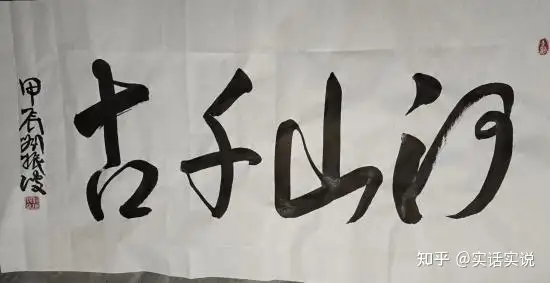 河山千古
甲辰刘振波
知乎 @实话实说